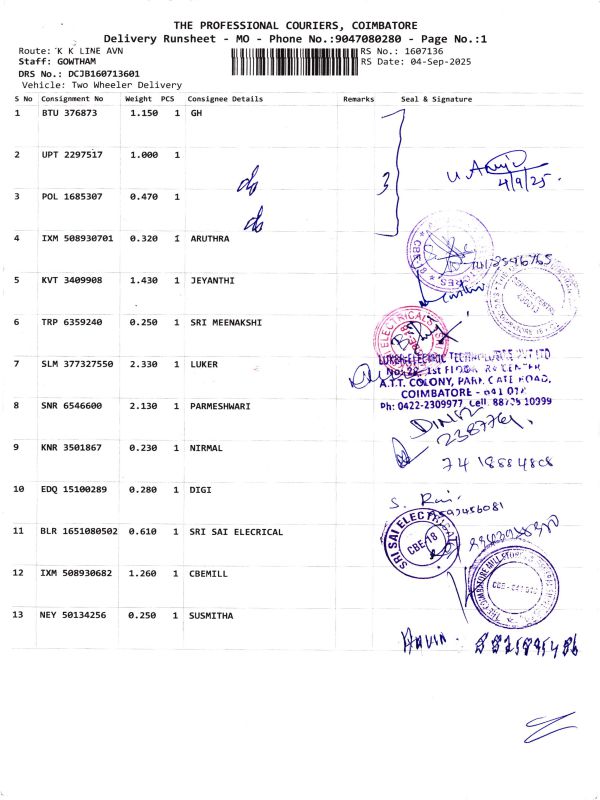 THE PROFESSIONAL COURIERS, COIMBATORE
Delivery Runsheet - MO - Phone No.:9047080280 - Page No.:1
Route: K K LINE AVN
RS No.: 1607136
Staff: GOWTHAM
RS Date: 04-Sep-2025
DRS No.: DCJB160713601
Vehicle: Two Wheeler Delivery
S No Consignment No Weight PCS Consignee Details Remarks Seal & Signature
1 BTU 376873 1.150 1 GH
2 UPT 2297517 1.000 1
3
4/9/25.
3 POL 1685307 0.470 1
4 IXM 508930701 0.320 1 ARUTHRA
5 KVT 3409908 1.430 1 JEYANTHI
6 TRP 6359240 0.250 1 SRI MEENAKSHI
ELECTRICALS
7 SLM 377327550 2.330 1 LUKER
LUKER ELECTRIC TECHNOLOGIES PVT LTD
No: 22, 1st FLOOR,
A.T.T. COLONY, PARK GATE ROAD,
COIMBATORE - 641 018
Ph: 0422-2309977, Cell: 10999
8 SNR 6546600 2.130 1 PARMESHWARI
9 KNR 3501867 0.230 1 NIRMAL
10 EDQ 15100289 0.280 1 DIGI
S. Rai
11 BLR 1651080502 0.610 1 SRI SAI ELECRICAL
SRI SAI ELECTRICAL
CBE-18
12 IXM 508930682 1.260 1 CBEMILL
13 NEY 50134256 0.250 1 SUSMITHA